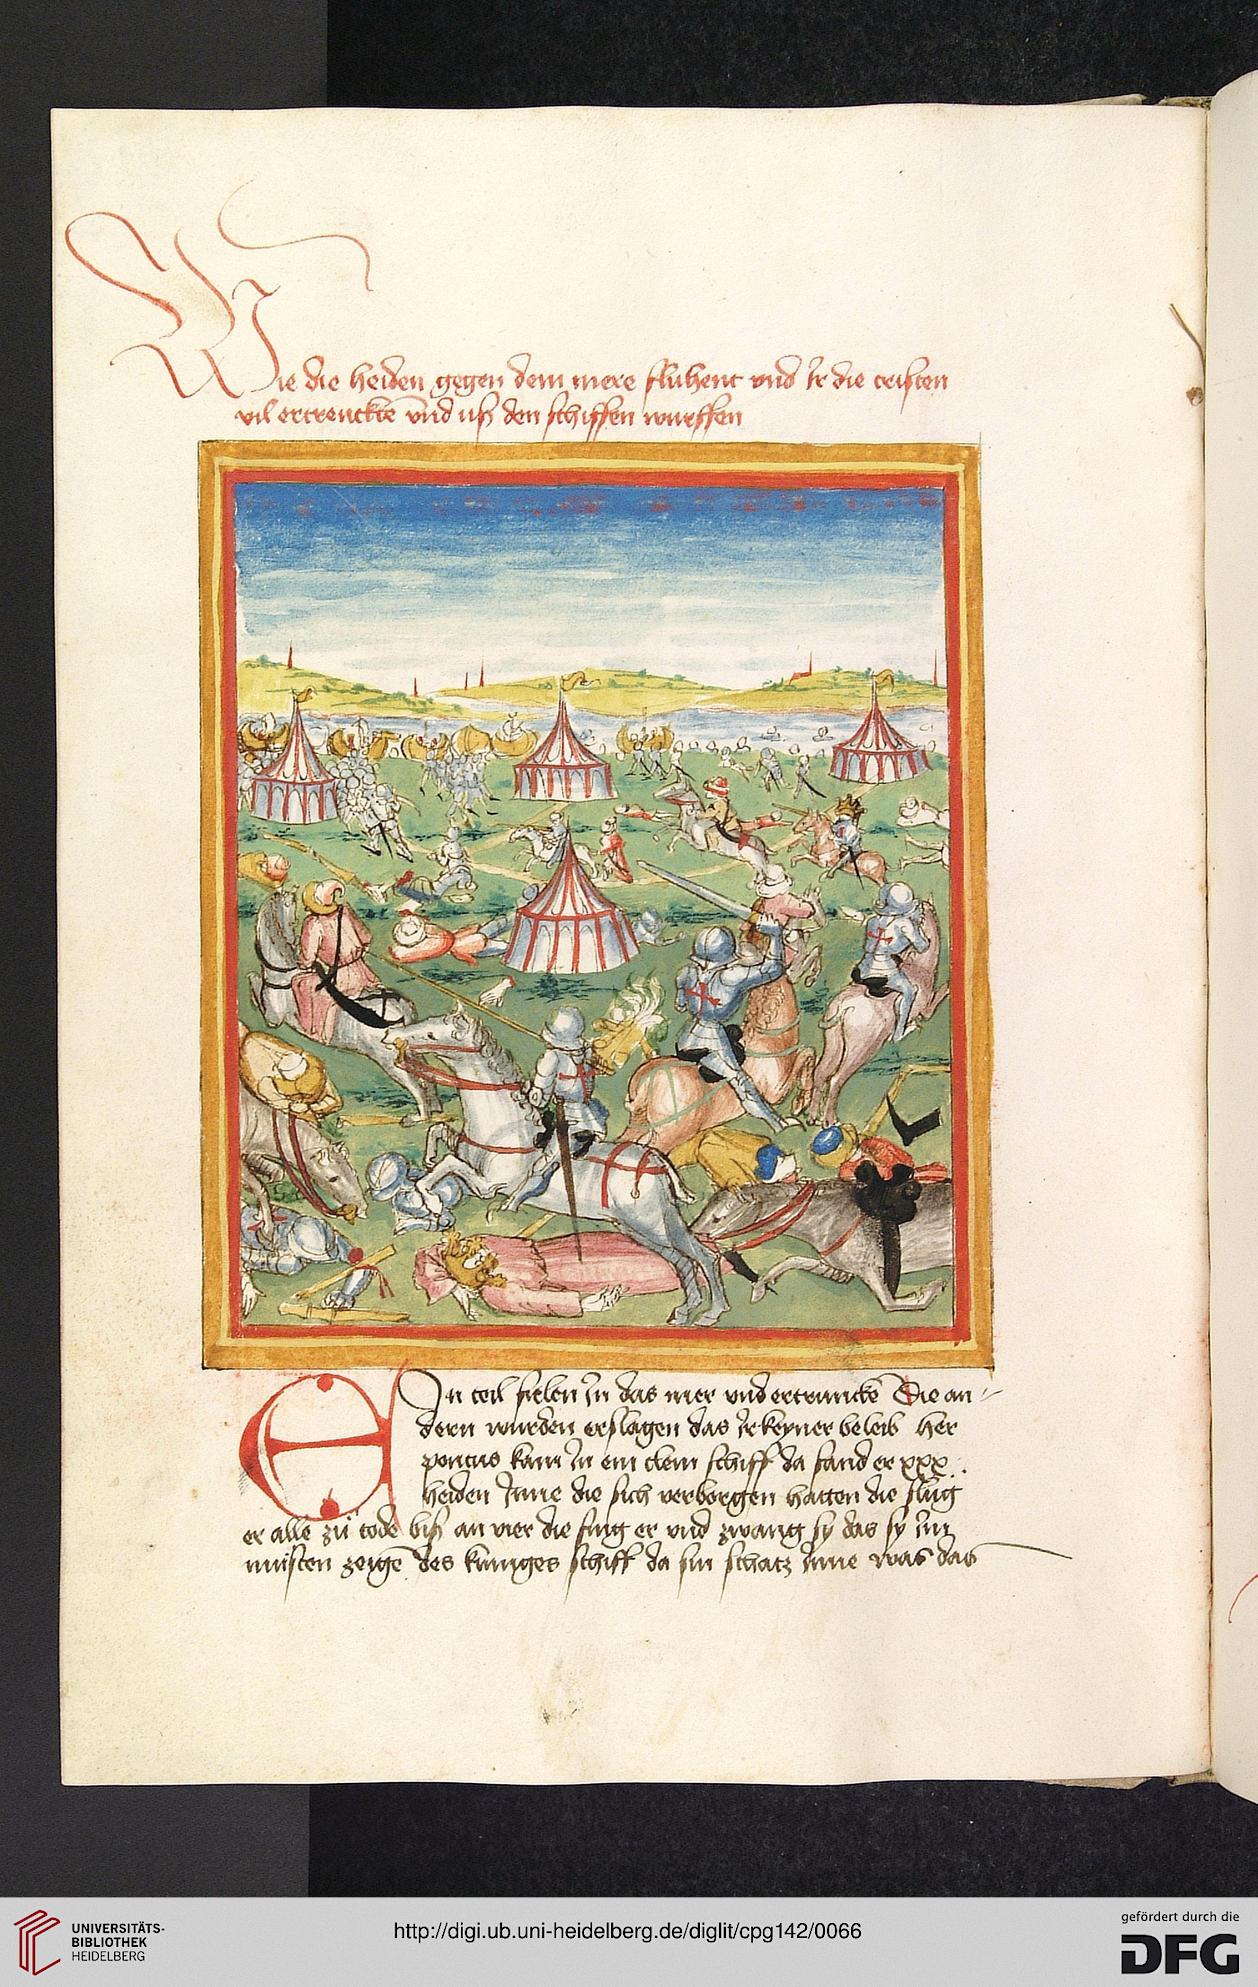 Wie die heiden gegen dem mere fluhent vnd Ir die cristen
vil ertrencktē vnd uß den schiffen wurffen
Ein teil fielen In das mer vnd ertrunckē Die an⸗
dern wurden erslagen das Ir keyner beleib her
pontus kam In ein clein schiff da fand er xxx
heiden Inne die sich verborgen hatten die slug
er alle zü tode biß an vier die fing er vnd zwang sy das sy Im
müsten zeigē des küniges schiff da sin schatz Inne was das
UNIVERSITÄTS-
BIBLIOTHEK
HEIDELBERG
http://digi.ub.uni-heidelberg.de/diglit/cpg142/0066
gefördert durch die
DFG